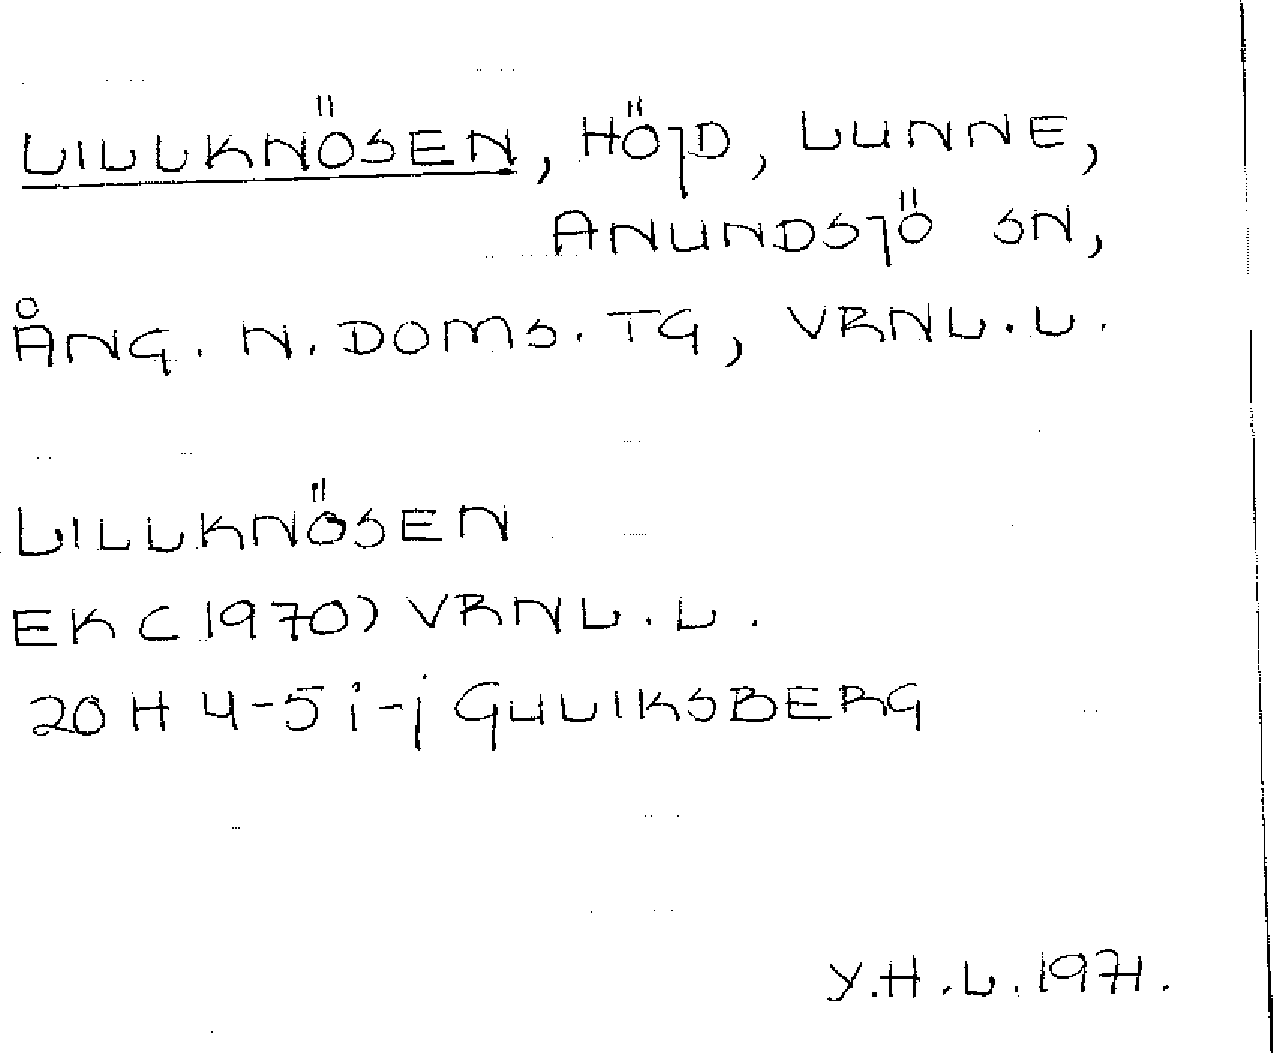 LILLKNÖSEN, HÖJD, LUNNE,
ANUNDSJÖ SN,
ÅNG. N. DOMS. TG, VRNL. L.
LILLKNÖSEN
EK (1970) VRNL. L.
20 H 4-5 i-j
Y.H.L. 1971.